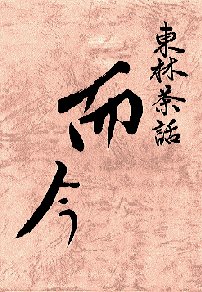 東林茶話
而今